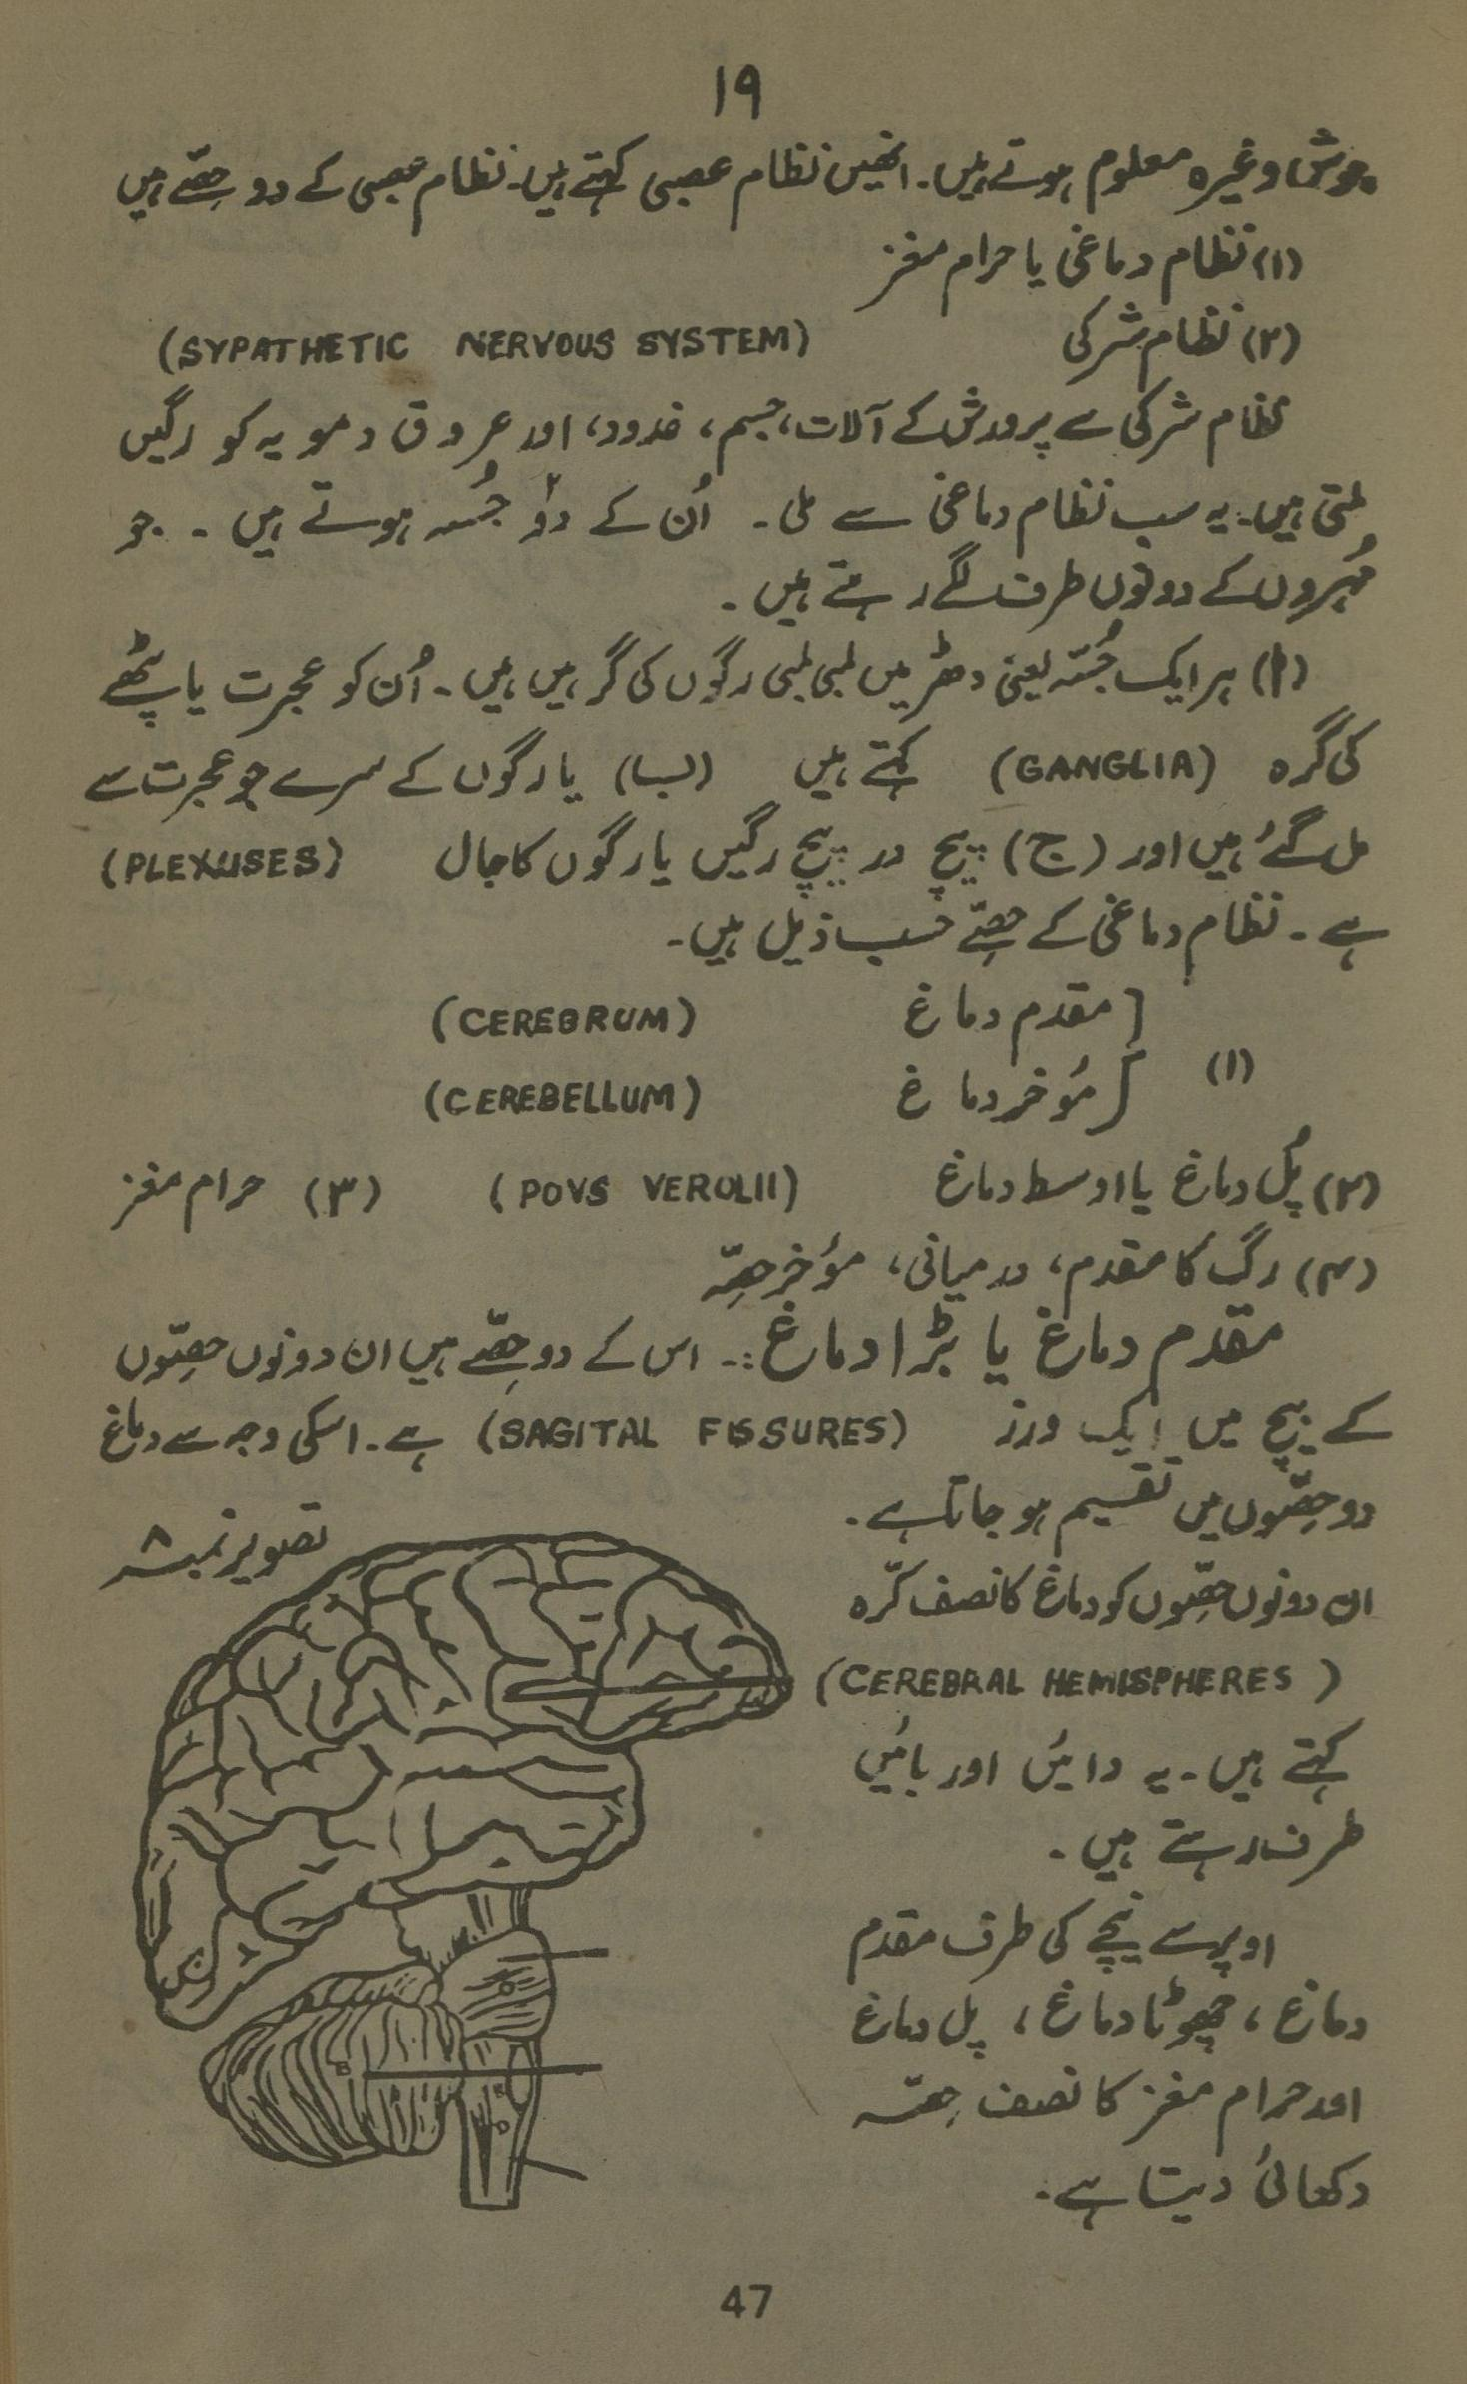 ۱۹
جوش وغیرہ معلوم ہوتے ہیں۔ انھیں نظام عصبی کہتے ہیں۔ نظام عصبی کے دو حِصّے ہیں
(۱) نظام دماغی یا حرام مغز
(۲) نظام شرکی (SYPATHETIC NERVOUS SYSTEM)
نظام شرکی سے پرورش کے آلات، جسم، غدود، اور عروق دمویہ کو رگیں
ملتی ہیں۔ یہ سب نظام دماغی سے ملی۔ اُن کے دو جُسہ ہوتے ہیں۔ جو
مُہروں کے دونوں طرف لگے رہتے ہیں۔
(ا) ہر ایک جُسّہ یعنی دھڑ میں لمبی لمبی رگوں کی گرہیں ہیں۔ اُن کو عجرت یا پٹھے
کی گرہ (GANGLIA) کہتے ہیں (ب) یا رگوں کے سرے جو عجرت سے
مل گئے ہیں اور (ج) پیچ در پیچ رگیں یا رگوں کا جال (PLEXUSES)
ہے۔ نظام دماغی کے حِصّے حسب ذیل ہیں۔
[مقدم دماغ (CEREBRUM)
(۱) [مُوخر دماغ (CEREBELLUM)
(۲) پُل دماغ یا اوسط دماغ (POVS VEROLII) (۳) حرام مغز
(۴) رگ کا مقدم، درمیانی، مؤخر حِصّہ
مقدم دماغ یا بڑا دماغ:۔ اس کے دو حِصّے ہیں ان دونوں حِصّوں
کے بیچ میں ایک ورز (SAGITAL FISSURES) ہے۔ اسکی وجہ سے دماغ
دو حِصّوں میں تقسیم ہو جاتا ہے۔
تصویر نمبر ۸
ان دونوں حِصّوں کو دماغ کا نصف کرّہ
(CEREBRAL HEMISPHERES)
کہتے ہیں۔ یہ دائیں اور بائیں
طرف رہتے ہیں۔
اوپر سے نیچے کی طرف مقدم
دماغ، چھوٹا دماغ، پل دماغ
اور حرام مغز کا نصف حِصّہ
دکھائی دیتا ہے۔
47